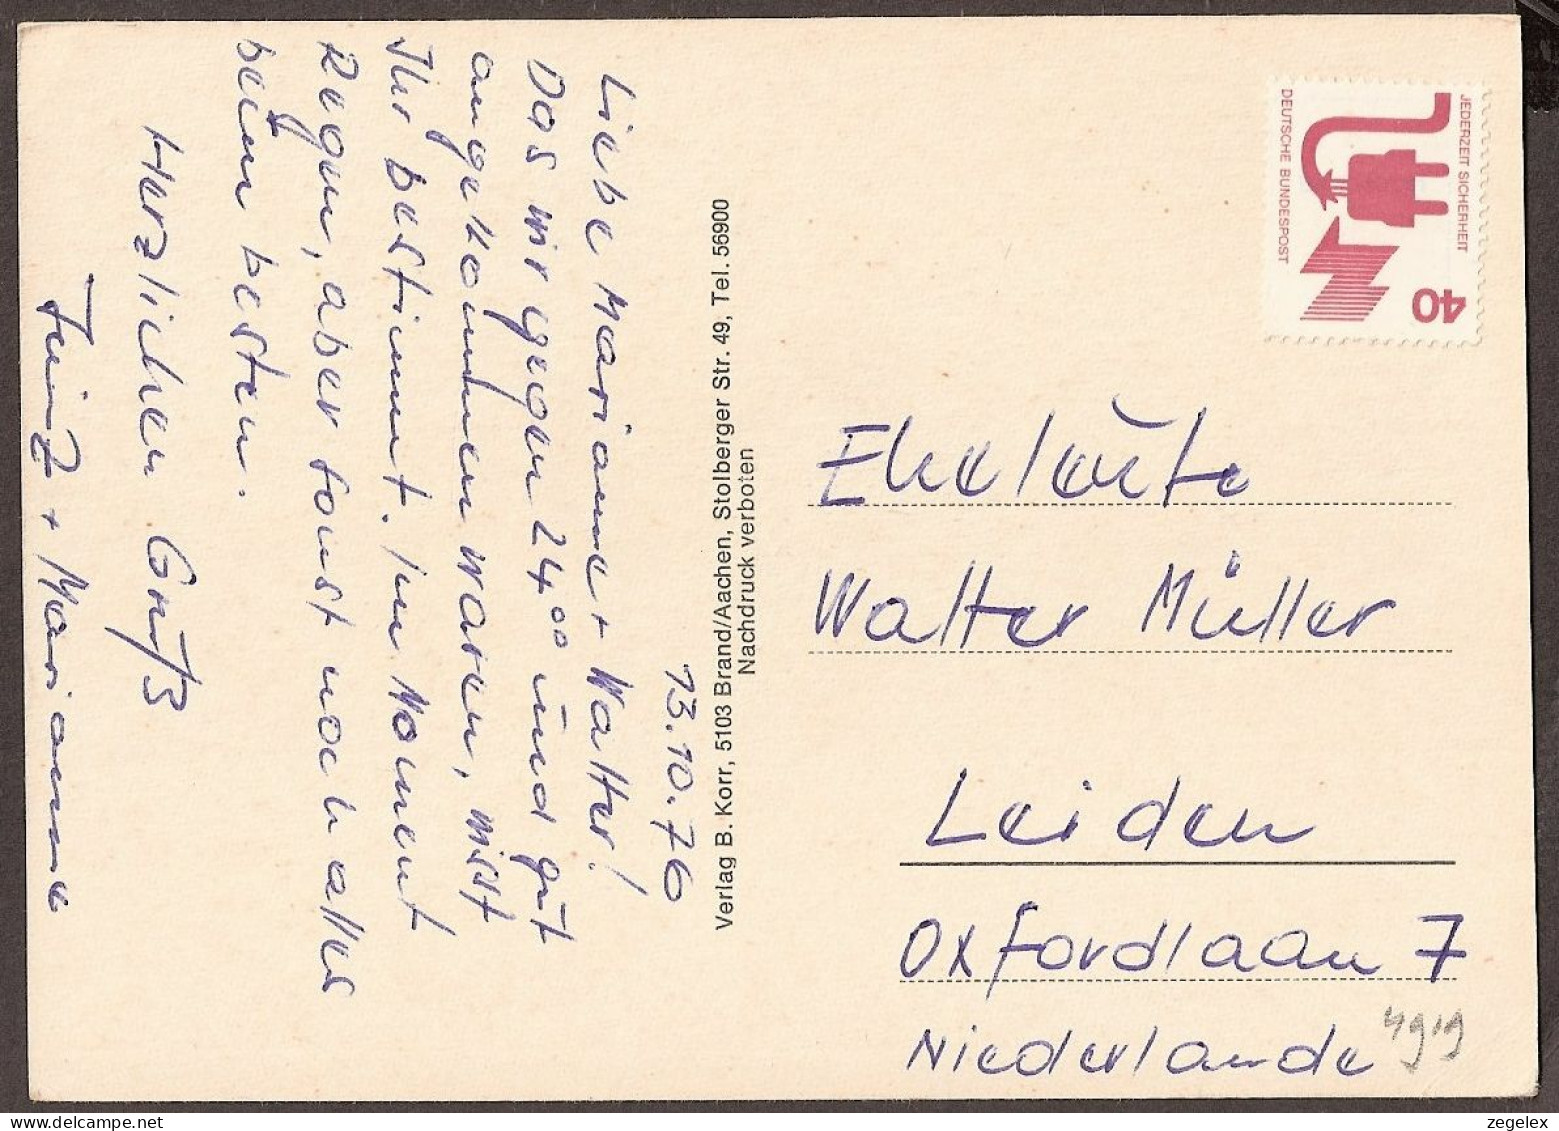 13.10.76
Liebe Marianne + Walter!
Das wir gegen 24⁰⁰ und gut
angekommen waren, wißt
Ihr bestimmt. Im Moment
Regen, aber sonst noch alles
beim besten.
Herzlichen Gruß
Heinz + Marianne
Verlag B. Korr, 5103 Brand/Aachen, Stolberger Str. 49, Tel. 56900
Nachdruck verboten
JEDERZEIT SICHERHEIT
DEUTSCHE BUNDESPOST
40
Eheleute
Walter Müller
Leiden
Oxfordlaan 7
Niederlande
zegelex